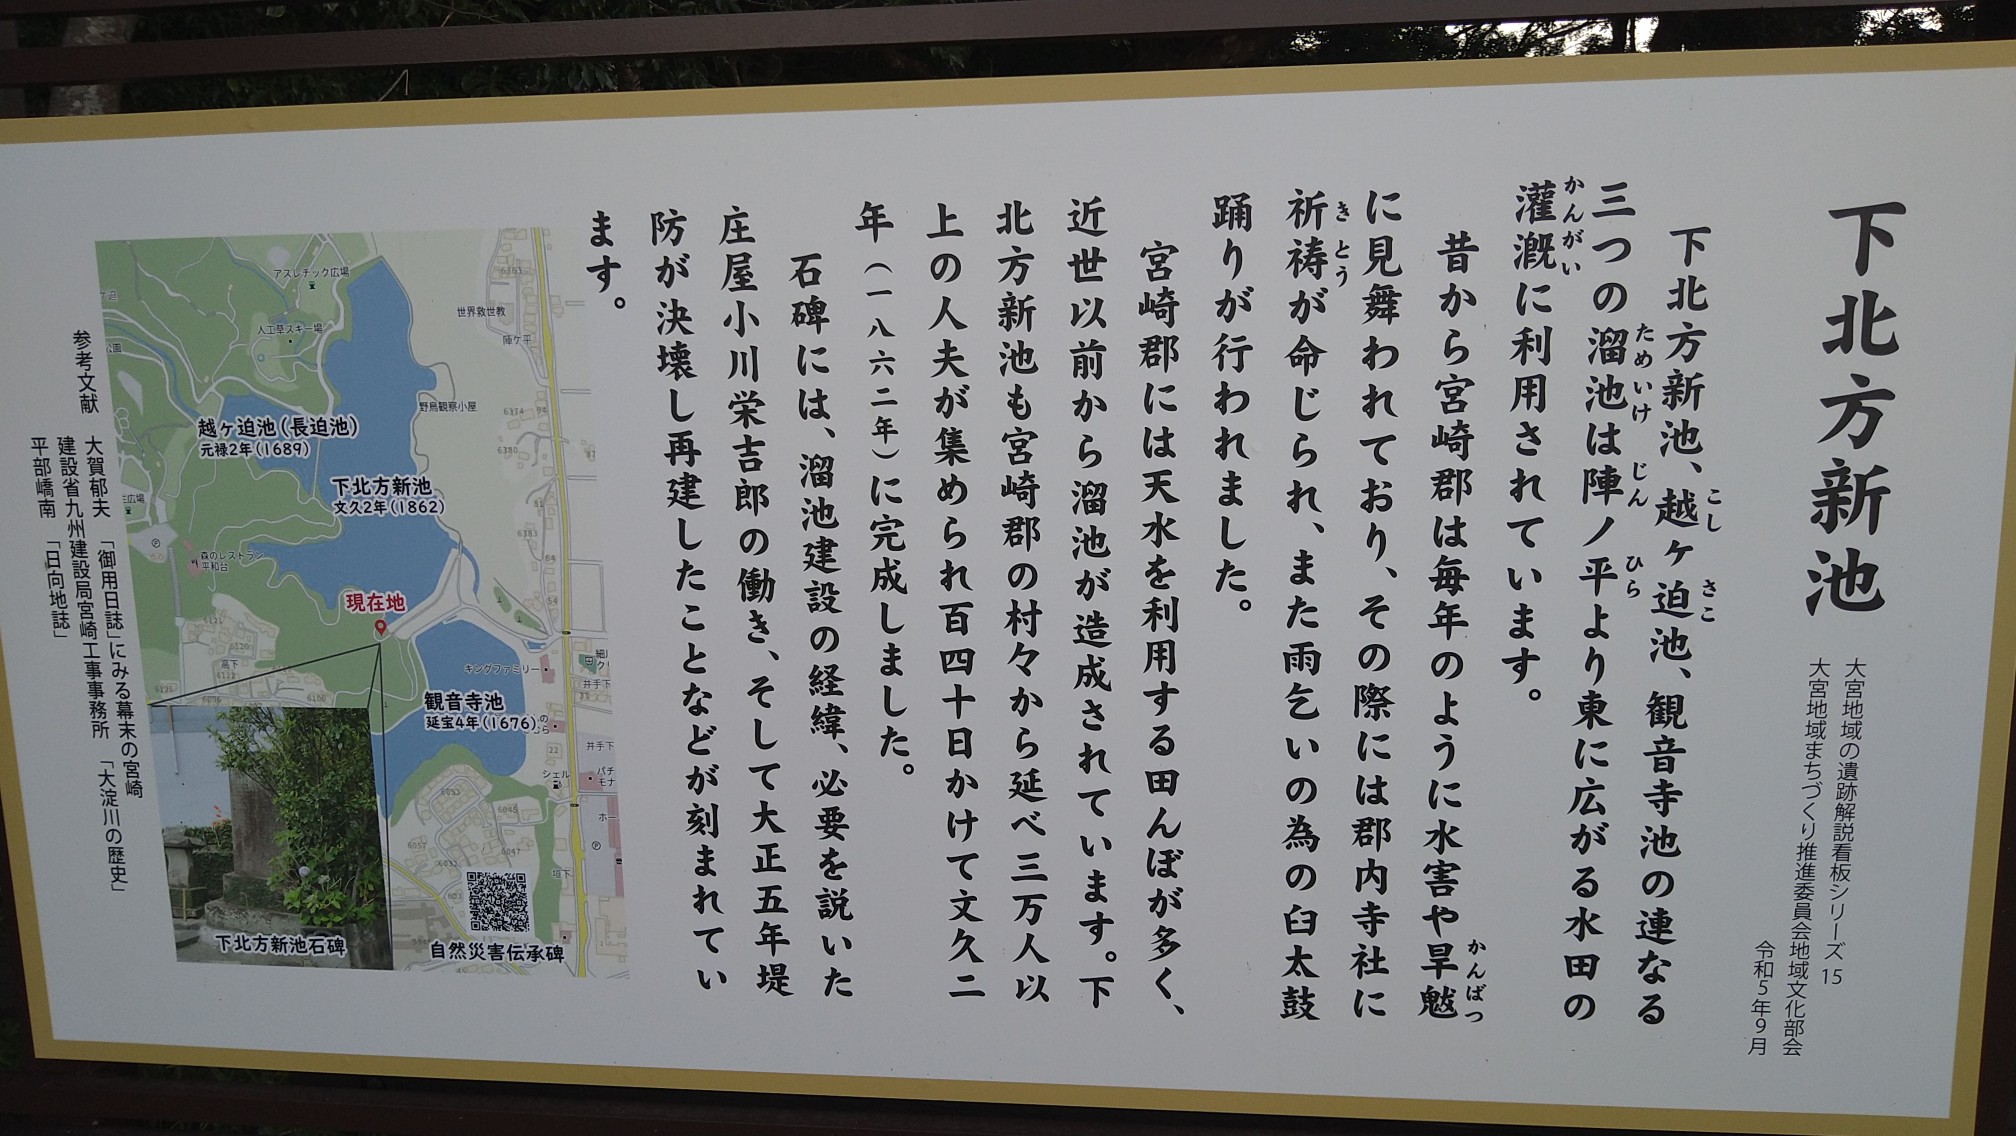 下北方新池
大宮地域の遺跡解説看板シリーズ 15
大宮地域まちづくり推進委員会地域文化部会
令和5年9月
下北方新池、越ヶ迫池、観音寺池の連なる
こし
さこ
三つの溜池は陣ノ平より東に広がる水田の
ためいけ
じん
ひら
灌漑に利用されています。
かんがい
昔から宮崎郡は毎年のように水害や旱魃
かんばつ
に見舞われており、その際には郡内寺社に
祈祷が命じられ、また雨乞いの為の臼太鼓
きとう
踊りが行われました。
宮崎郡には天水を利用する田んぼが多く、
近世以前から溜池が造成されています。下
北方新池も宮崎郡の村々から延べ三万人以
上の人夫が集められ百四十日かけて文久二
年（一八六二年）に完成しました。
石碑には、溜池建設の経緯、必要を説いた
庄屋小川栄吉郎の働き、そして大正五年堤
防が決壊し再建したことなどが刻まれてい
ます。
アスレチック広場
人工草スキー場
世界救世教
陣ケ平
野鳥観察小屋
越ヶ迫池（長迫池）
元禄2年(1689)
下北方新池
文久2年(1862)
森のレストラン
平和台
現在地
キングファミリー
観音寺池
延宝4年(1676)
高下
井手下
シェル
垣下
下北方新池石碑
自然災害伝承碑
参考文献 大賀郁夫 「御用日誌」にみる幕末の宮崎
建設省九州建設局宮崎工事事務所 「大淀川の歴史」
平部嶠南 「日向地誌」